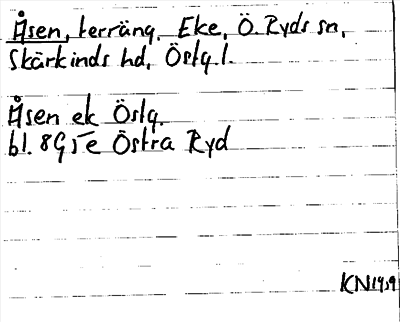 Åsen, terräng, Eke, Ö. Ryds sn,
Skärkinds hd, Östg.l.
Åsen ek Östg.
bl. 8G 5e Östra Ryd